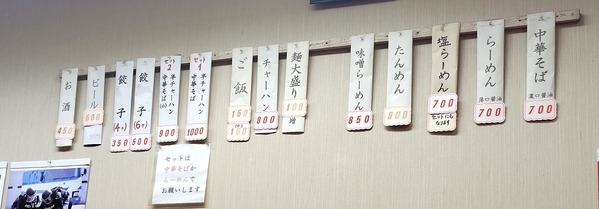 中華そば
濃口醤油
700
らーめん
薄口醤油
700
塩らーめん
700
セットにも
なります
たんめん
800
味噌らーめん
850
麺大盛り
100
増
チャーハン
800
ご飯
150
100
セット1
半チャーハン
中華そば
1000
セット2
半チャーハン
中華そば(小)
900
餃子
(6ヶ)
500
餃子
(4ヶ)
350
ビール
600
お酒
450
セットは
中華そばか
らーめんで
お願いします